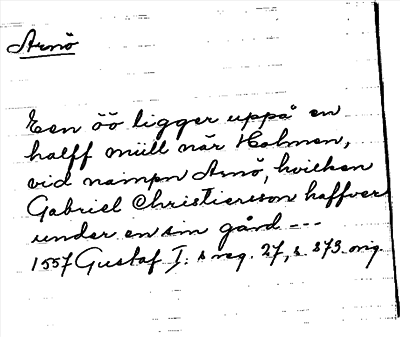 Arnö
Een öö ligger uppå en
halff miill när Holmen,
vid nampn Arnö, hvilken
Gabriel Christiersson haffver
under en sin gård ---
1557 Gustaf I: s reg. 27, s. 373 orig.